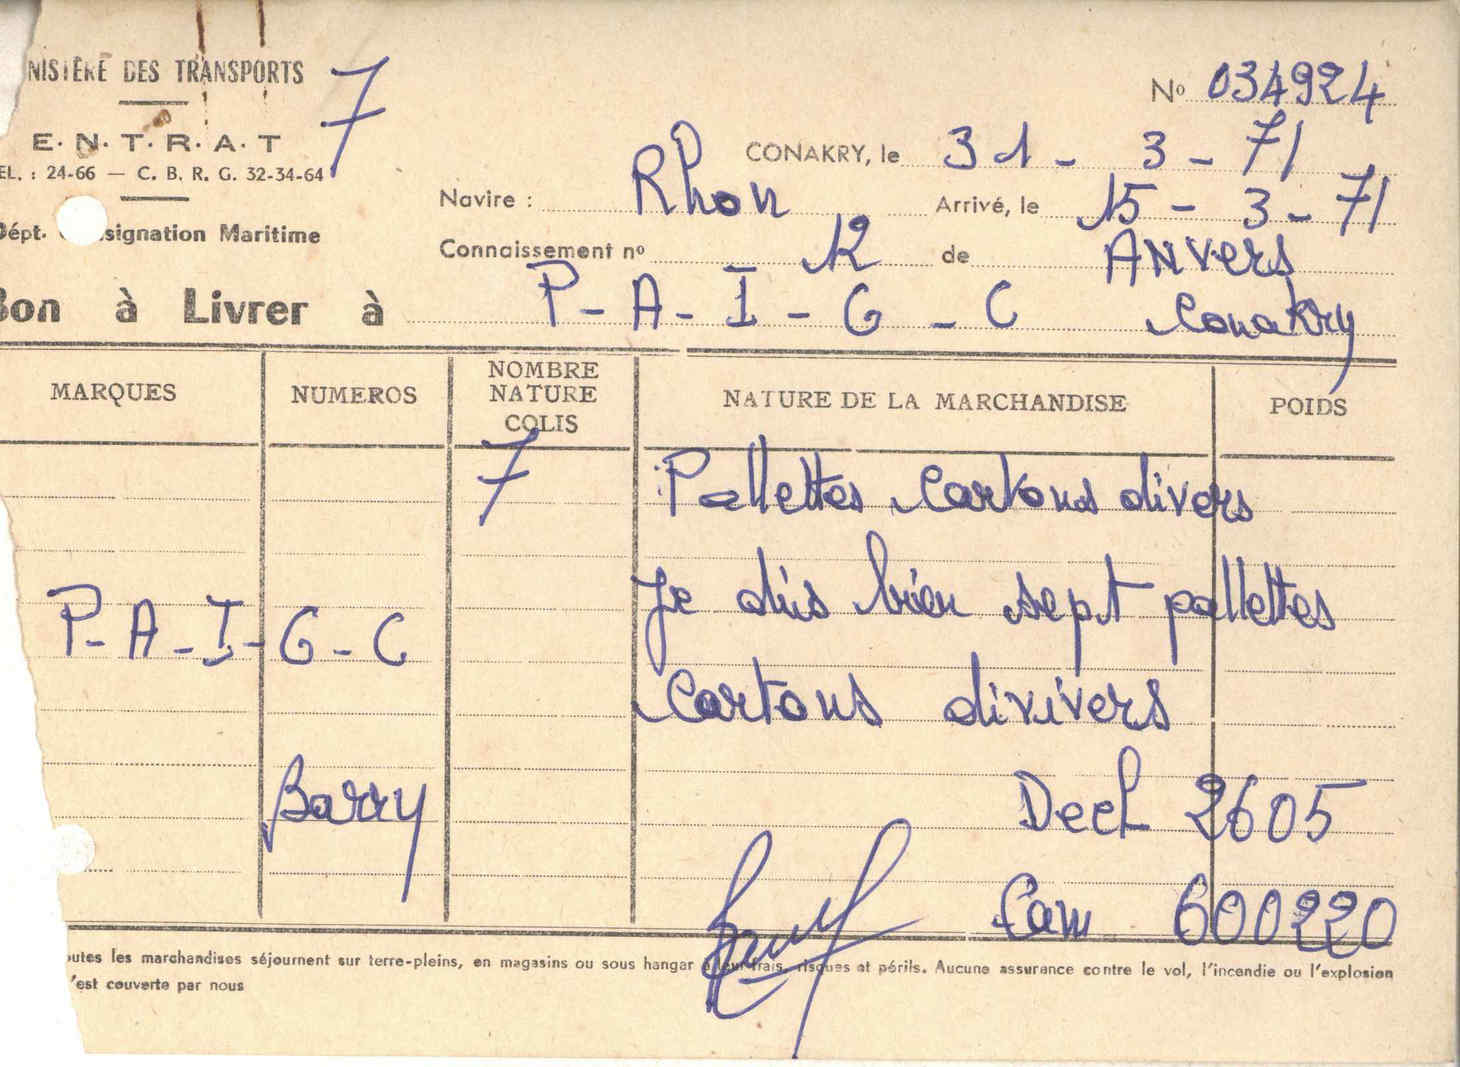 NISTÈRE DES TRANSPORTS
7
Nº 034924
E. N. T. R. A. T
CONAKRY, le 31 - 3 - 71
EL. : 24-66 — C. B. R. G. 32-34-64
Navire : Rhon Arrivé, le 15 - 3 - 71
Dépt. signation Maritime
Connaissement nº 12 de ANVers
Bon à Livrer à P - A - I - G - C Conakry
MARQUES NUMEROS NOMBRE NATURE COLIS NATURE DE LA MARCHANDISE POIDS
7 Pallettes Cartons divers
Je dis bien sept pallettes
P - A - I - G - C
Cartons divivers
Barry Decl 2605
Cam 600220
outes les marchandises séjournent sur terre-pleins, en magasins ou sous hangar à leur frais, risques et périls. Aucune assurance contre le vol, l'incendie ou l'explosion
'est couverte par nous